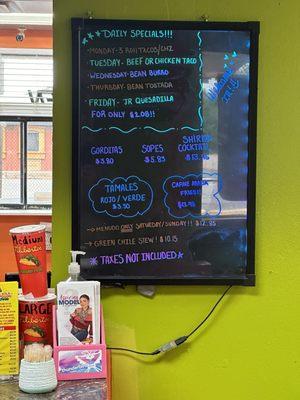 DAILY SPECIALS!!!
TUESDAY- BEEF OR CHICKEN TACO
WEDNESDAY- BEAN BURRO
THURSDAY- BEAN TOSTADA
FRIDAY- JR QUESADILLA
FOR ONLY $2.08!!
GORDITAS
$5.80
SOPES
$5.89
SHRIMP
COCKTAIL
TAMALES
ROJO / VERDE
$3.50
CARNE ASADA
FRIES
MENUDO ONLY SATURDAY/SUNDAY!! $12.85
GREEN CHILE STEW! $10.15
*TAXES NOT INCLUDED*
MEDIUM
LARGE
MODEL